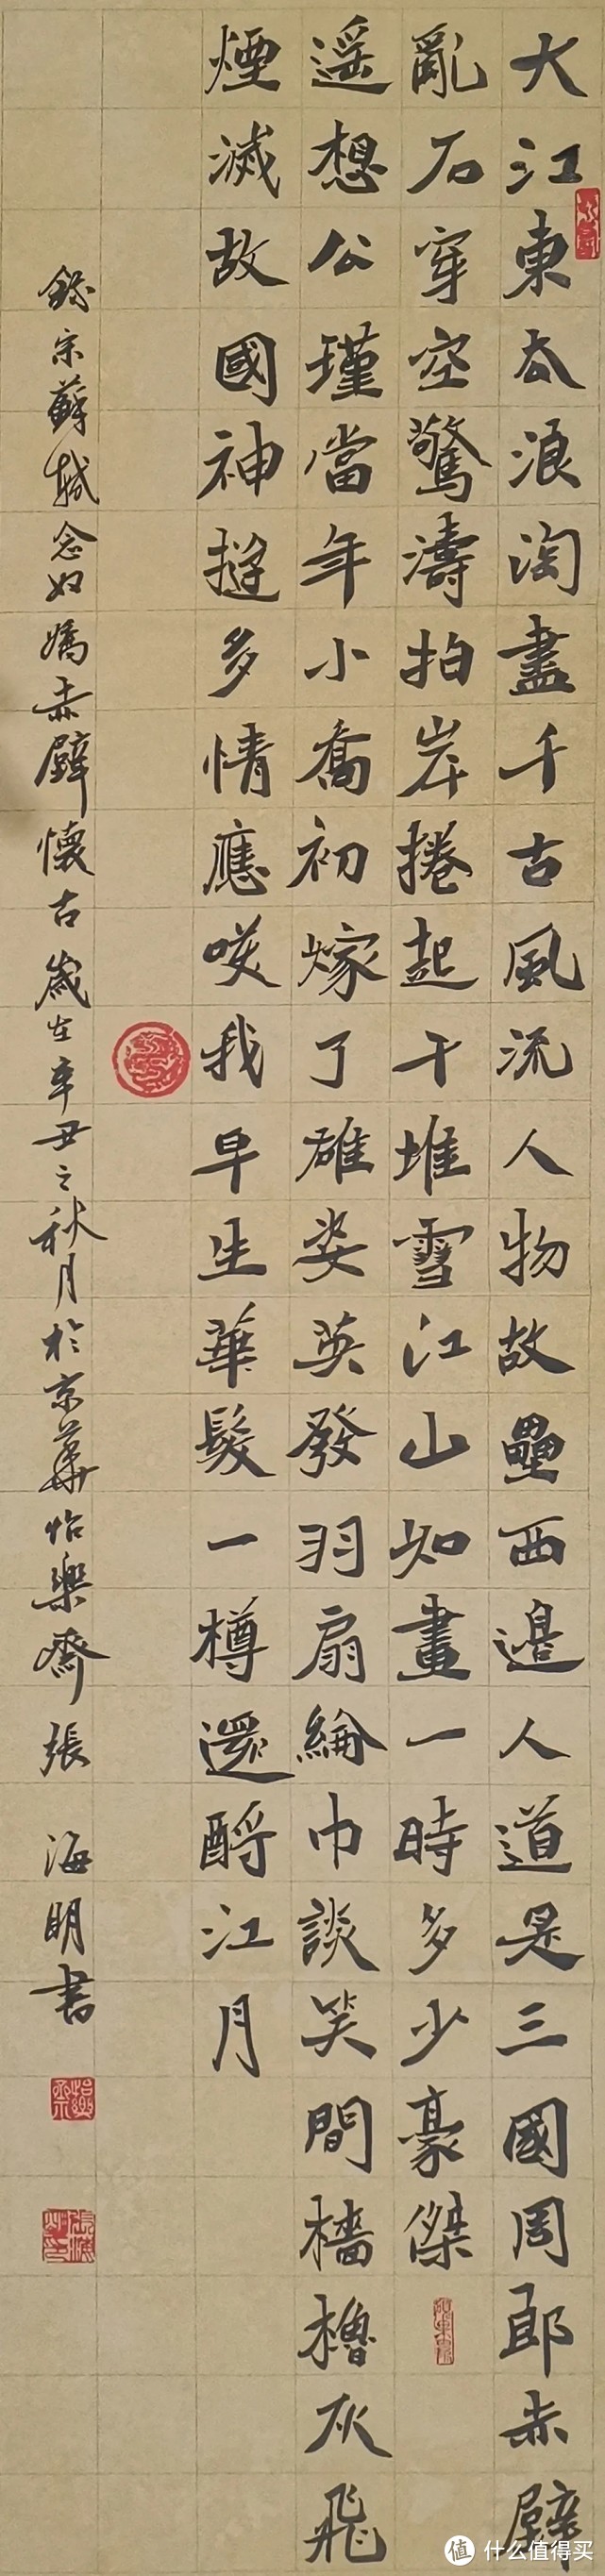 大江東去浪淘盡千古風流人物故壘西邊人道是三國周郎赤壁
亂石穿空驚濤拍岸捲起千堆雪江山如畫一時多少豪傑
遥想公瑾當年小喬初嫁了雄姿英發羽扇綸巾談笑間檣櫓灰飛
煙滅故國神遊多情應咲我早生華髮一樽還酹江月
錄宋蘇軾念奴嬌赤壁懷古歲在辛丑之秋月於京華怡樂齋張海明書
值 什么值得买